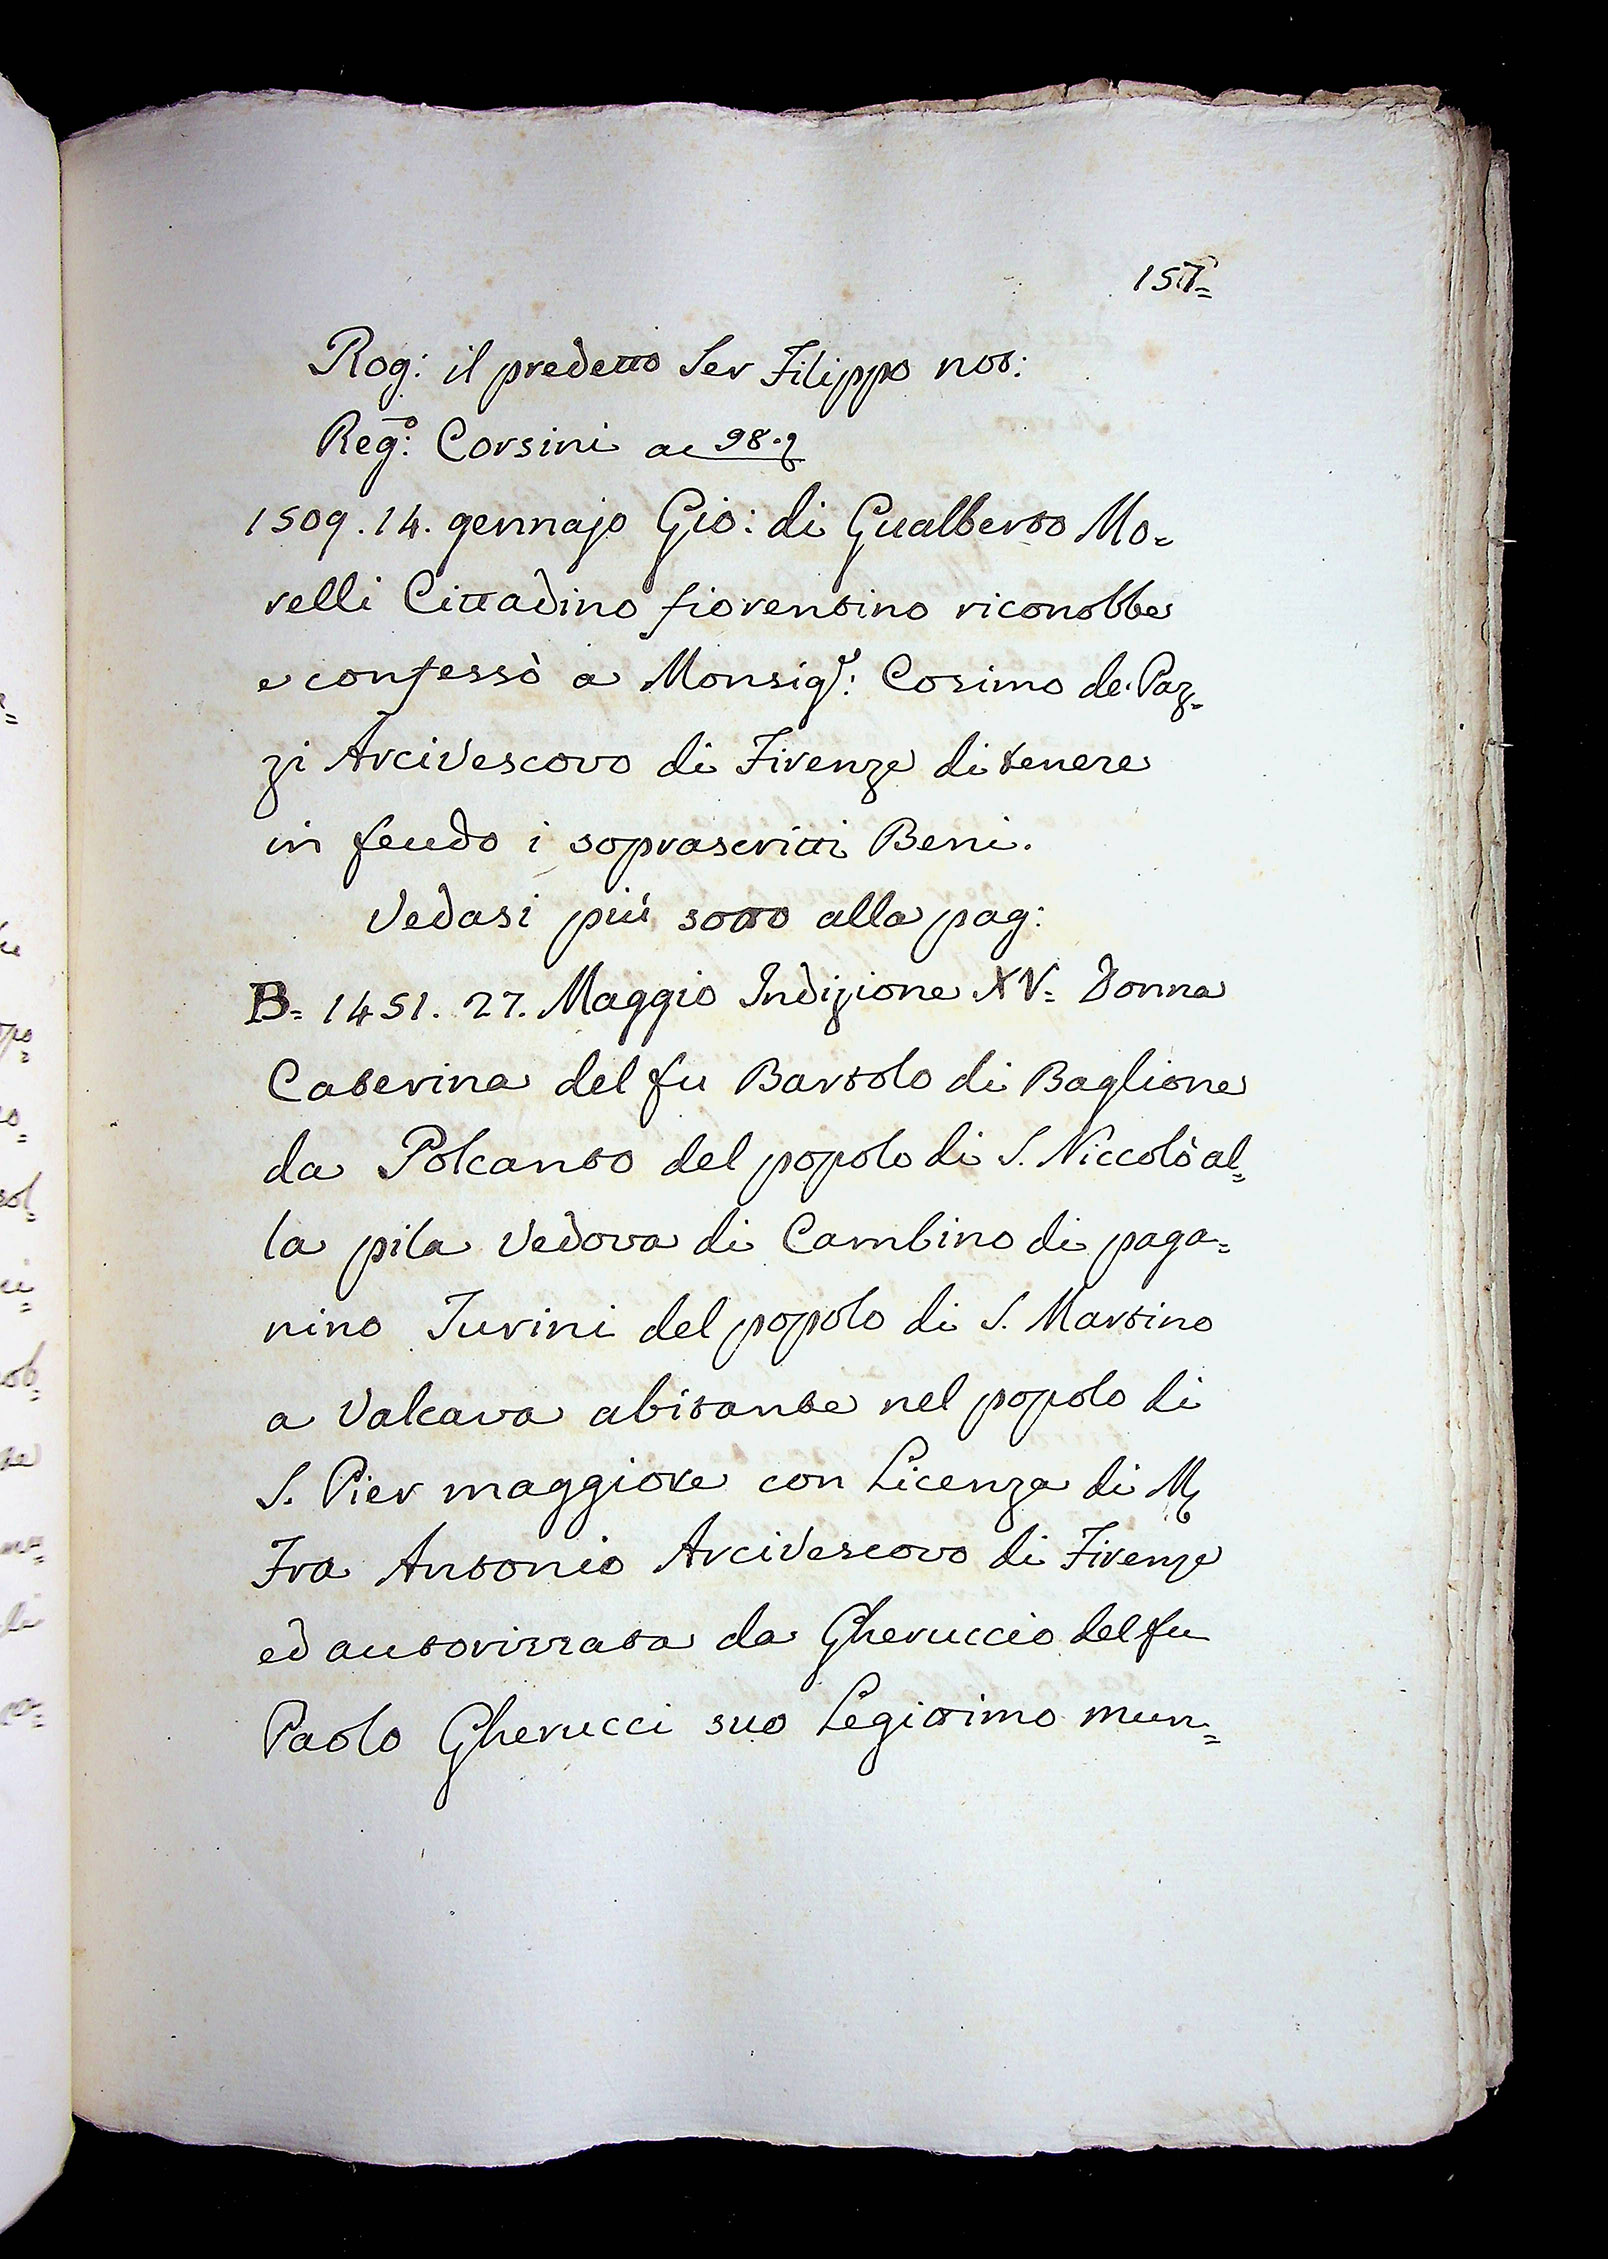 157=
Rog: il predetto Ser Filippo not:
Reg:o Corsini a 98.
1509. 14. gennajo Gio: di Gualberto Mo=
relli Cittadino fiorentino riconobbe
e confessò a Monsig.r: Cosimo de Paz=
zi Arcivescovo di Firenze di tenere
in feudo i soprascritti Beni.
Vedasi più sotto alla pag:
B= 1451. 27. Maggio Indizione XV= Donna
Caterina del fu Bartolo di Baglione
da Polcanto del popolo di S. Niccolò al=
la pila Vedova di Cambino di paga=
nino Turini del popolo di S. Martino
a Valcava abitante nel popolo di
S. Pier maggiore con Licenza di M
Fra Antonio Arcivescovo di Firenze
ed autorizzata da Gheruccio del fu
Paolo Gherucci suo Legittimo mun=